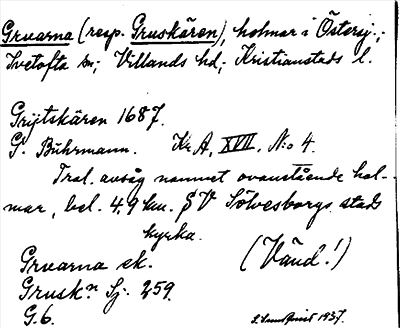 Gruarna (resp. Gruskären), holmar i Östersj.;
Ivetofta sn; Villands hd; Kristianstads l.
Grijtskären 1687.
G. Buhrmann. Kr. A, XVII, N:o 4.
Trol. avsåg namnet ovanstående hol-
mar, bel. 4,9 km. SV Sölvesborgs stads
kyrka.
Gruarna ek. (Vänd!)
Grusk:n Sj. 259.
G.6. 1937.